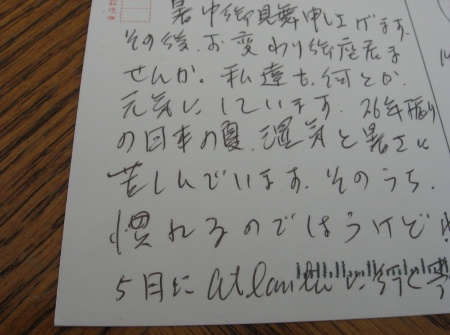 暑中御見舞申し上げます。
その後、お変わり御座居ま
せんか。私達も、何とか
元気に、しています。26年振り
の日本の夏、湿気と暑さに
苦しんでいます。そのうち、
慣れるのでせうけど
5日に Atlanta に